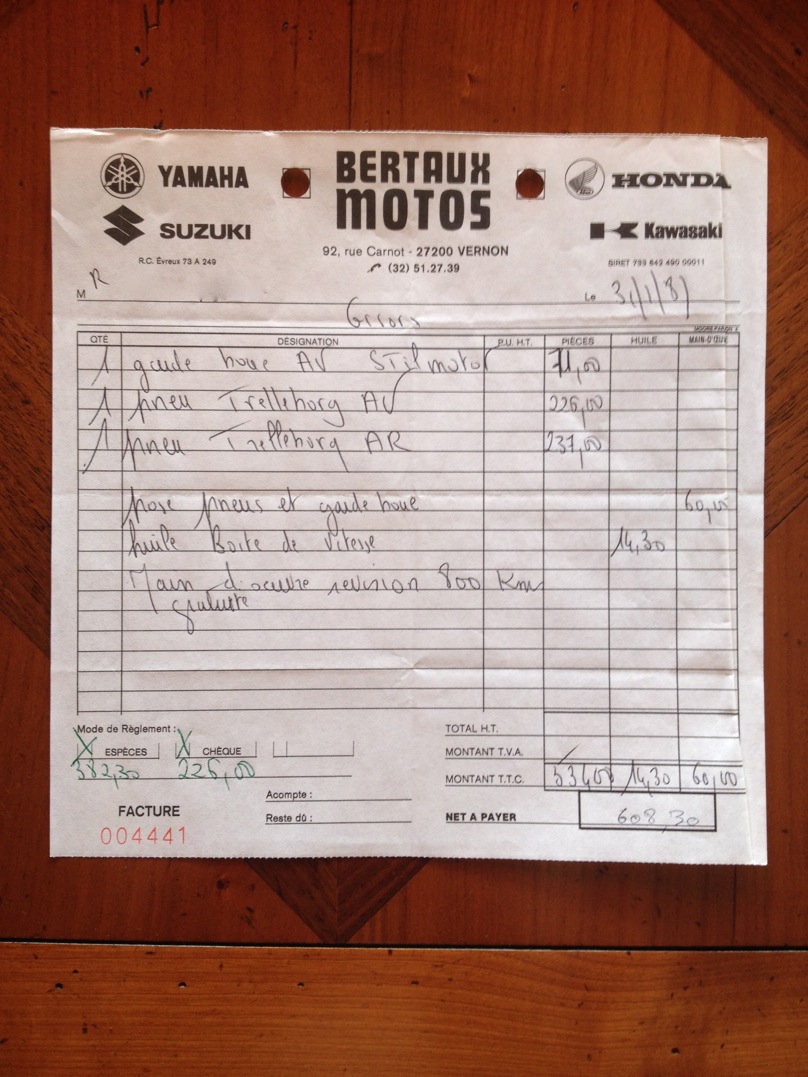 YAMAHA
BERTAUX
MOTOS
HONDA
SUZUKI
Kawasaki
92, rue Carnot - 27200 VERNON
(32) 51.27.39
R.C. Évreux 73 A 249
M R
Le 31/1/81
QTÉ DÉSIGNATION P.U. H.T. PIÈCES HUILE MAIN-D'ŒUV
1 garde boue AV Stilmotor 71,00
1 pneu Trelleborg AV 226,00
1 pneu Trelleborg AR 237,00
pose pneus et garde boue 60,00
huile Boite de Vitesse 14,30
Main d'oeuvre revision 800 Km
gratuite
Mode de Règlement :
X ESPÈCES X CHÈQUE
382,30 226,00
TOTAL H.T.
MONTANT T.V.A.
MONTANT T.T.C. 534,00 14,30 60,00
Acompte :
FACTURE
004441
Reste dû :
NET A PAYER 608,30